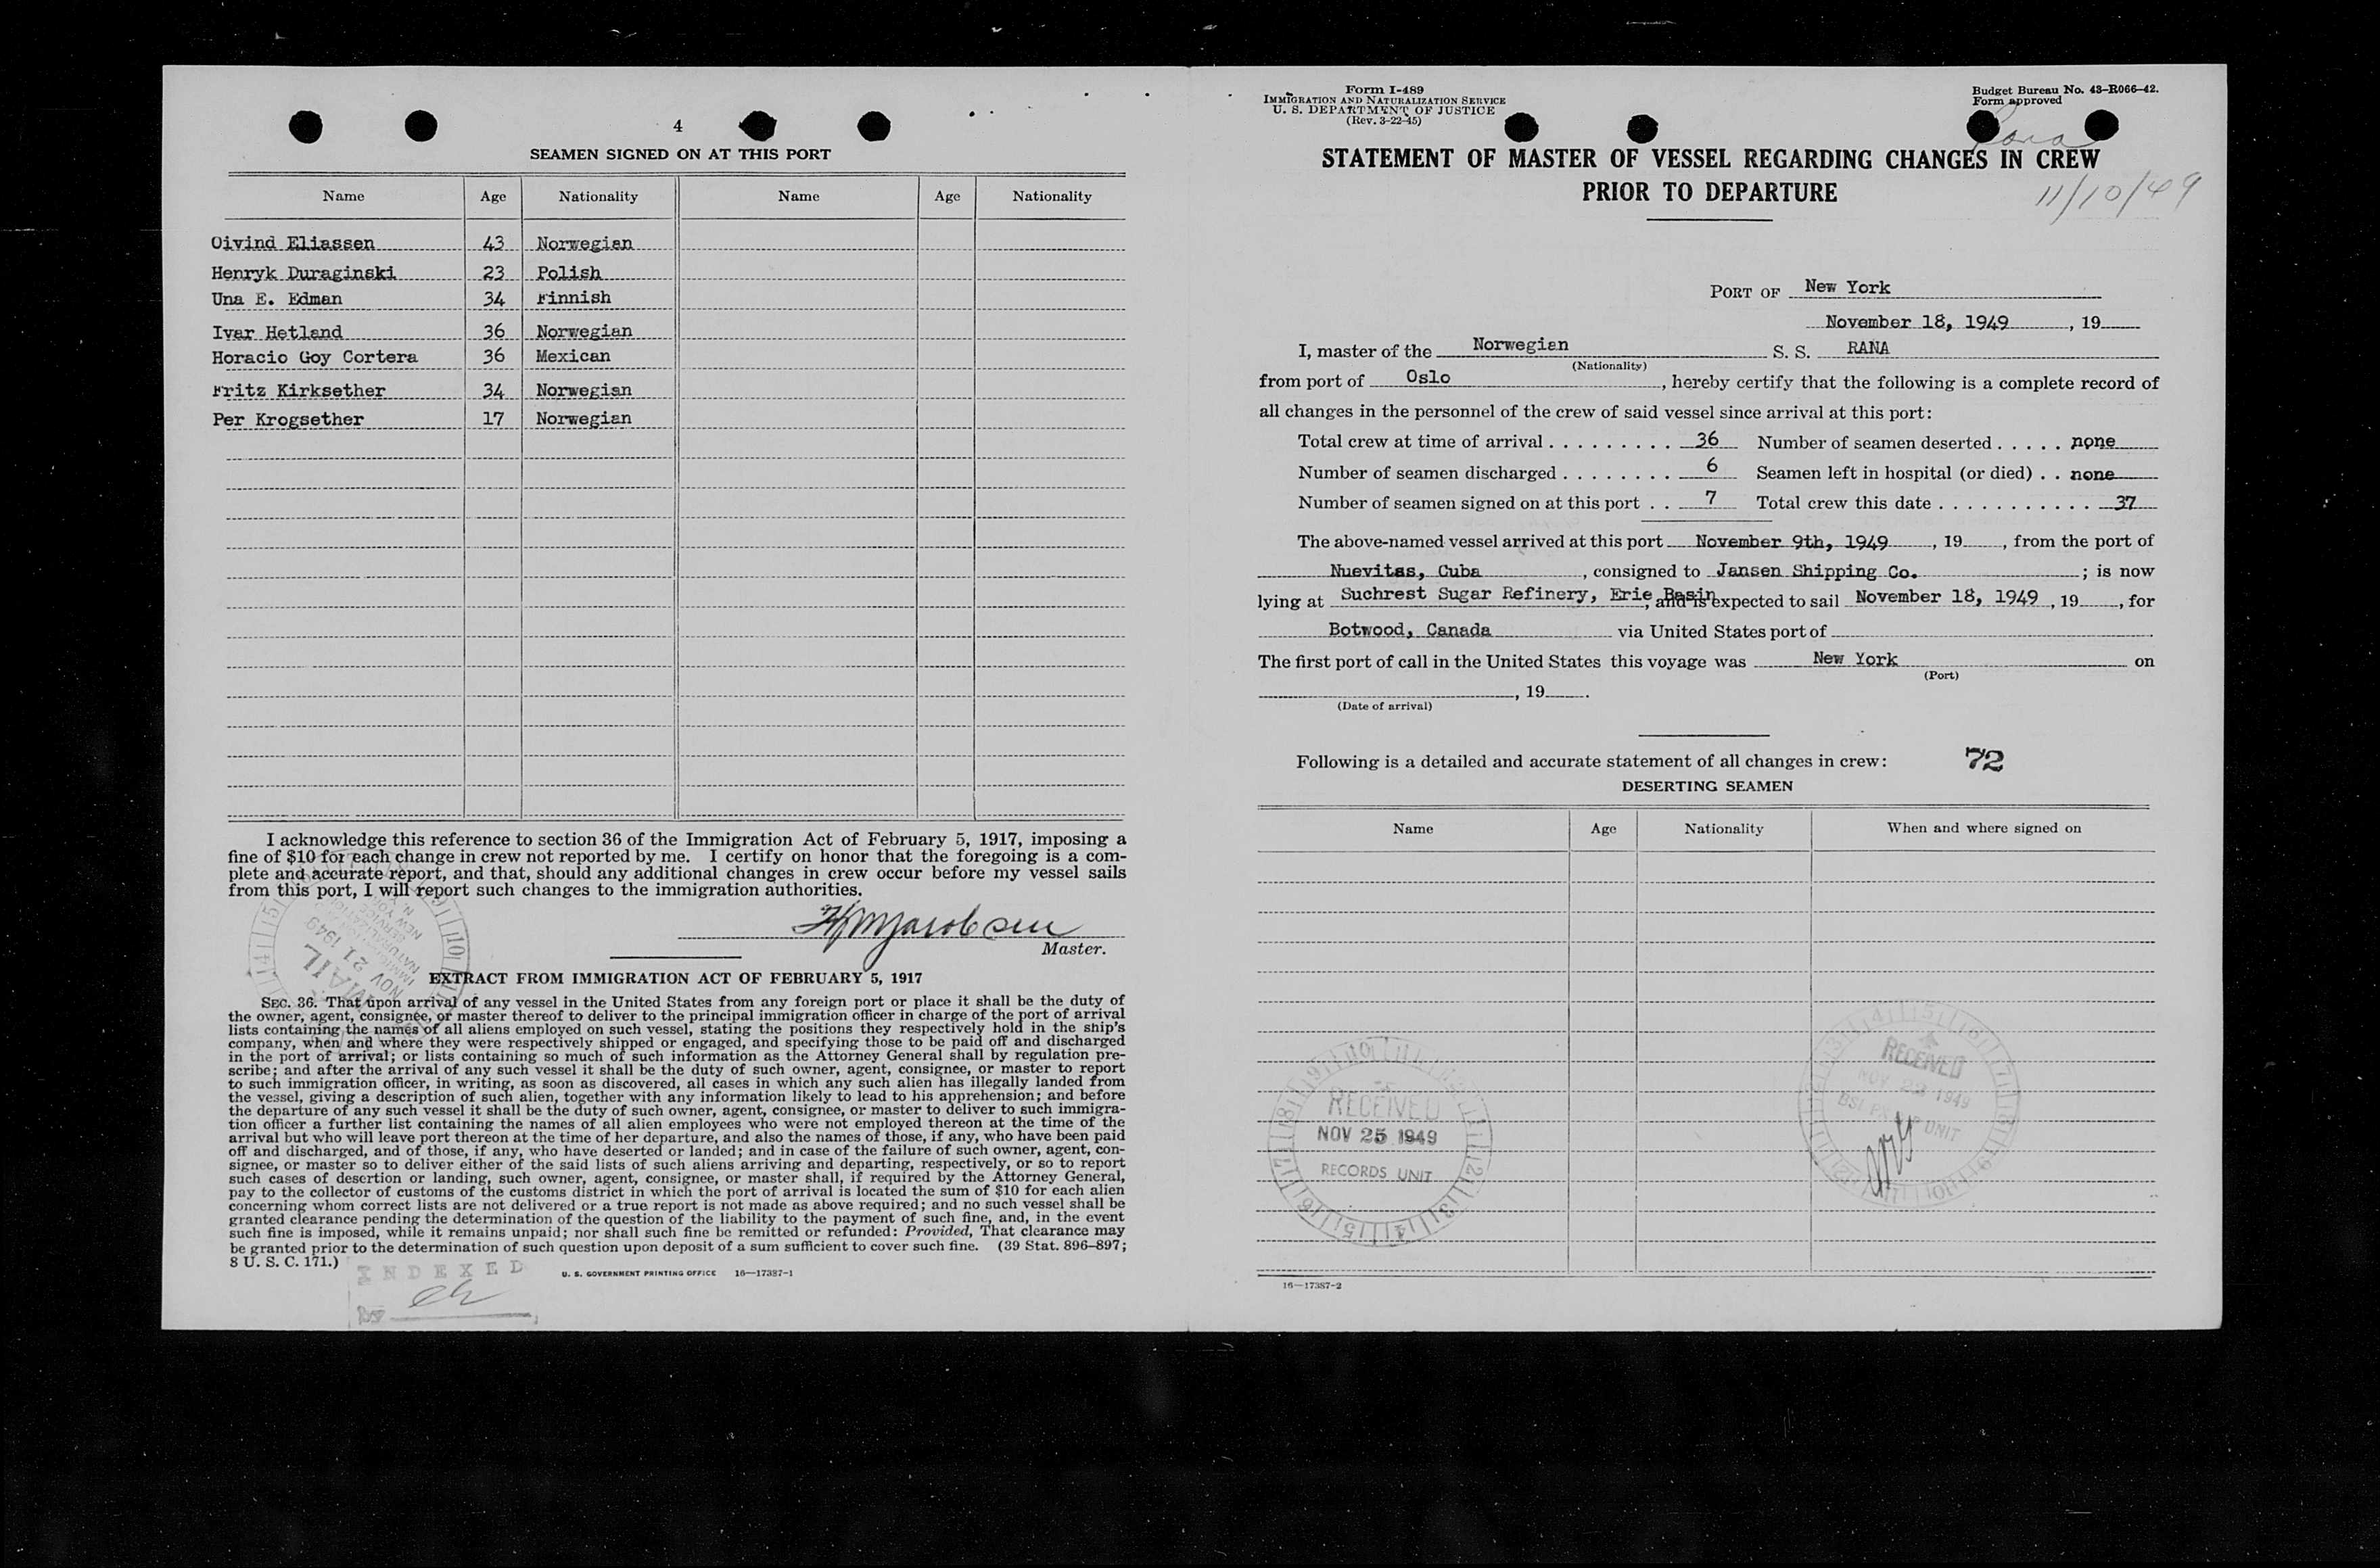 4
SEAMEN SIGNED ON AT THIS PORT
Name Age Nationality Name Age Nationality
Oivind Eliassen 43 Norwegian
Henryk Duraginski 23 Polish
Una E. Edman 34 Finnish
Ivar Hetland 36 Norwegian
Horacio Goy Cortera 36 Mexican
Fritz Kirksether 34 Norwegian
Per Krogsether 17 Norwegian
I acknowledge this reference to section 36 of the Immigration Act of February 5, 1917, imposing a
fine of $10 for each change in crew not reported by me. I certify on honor that the foregoing is a com-
plete and accurate report, and that, should any additional changes in crew occur before my vessel sails
from this port, I will report such changes to the immigration authorities.
Master.
NOV 21 1949
MAIL
EXTRACT FROM IMMIGRATION ACT OF FEBRUARY 5, 1917
SEC. 36. That upon arrival of any vessel in the United States from any foreign port or place it shall be the duty of
the owner, agent, consignee, or master thereof to deliver to the principal immigration officer in charge of the port of arrival
lists containing the names of all aliens employed on such vessel, stating the positions they respectively hold in the ship's
company, when and where they were respectively shipped or engaged, and specifying those to be paid off and discharged
in the port of arrival; or lists containing so much of such information as the Attorney General shall by regulation pre-
scribe; and after the arrival of any such vessel it shall be the duty of such owner, agent, consignee, or master to report
to such immigration officer, in writing, as soon as discovered, all cases in which any such alien has illegally landed from
the vessel, giving a description of such alien, together with any information likely to lead to his apprehension; and before
the departure of any such vessel it shall be the duty of such owner, agent, consignee, or master to deliver to such immigra-
tion officer a further list containing the names of all alien employees who were not employed thereon at the time of the
arrival but who will leave port thereon at the time of her departure, and also the names of those, if any, who have been paid
off and discharged, and of those, if any, who have deserted or landed; and in case of the failure of such owner, agent, con-
signee, or master so to deliver either of the said lists of such aliens arriving and departing, respectively, or so to report
such cases of desertion or landing, such owner, agent, consignee, or master shall, if required by the Attorney General,
pay to the collector of customs of the customs district in which the port of arrival is located the sum of $10 for each alien
concerning whom correct lists are not delivered or a true report is not made as above required; and no such vessel shall be
granted clearance pending the determination of the question of the liability to the payment of such fine, and, in the event
such fine is imposed, while it remains unpaid; nor shall such fine be remitted or refunded: Provided, That clearance may
be granted prior to the determination of such question upon deposit of a sum sufficient to cover such fine. (39 Stat. 896–897;
8 U. S. C. 171.)
INDEXED
U. S. GOVERNMENT PRINTING OFFICE 16—17387-1
Form I-489
IMMIGRATION AND NATURALIZATION SERVICE
U. S. DEPARTMENT OF JUSTICE
(Rev. 3-22-45)
Budget Bureau No. 43-R066-42.
Form approved
Rana
STATEMENT OF MASTER OF VESSEL REGARDING CHANGES IN CREW
PRIOR TO DEPARTURE
11/10/49
PORT OF New York
November 18, 1949, 19
I, master of the Norwegian S. S. RANA
(Nationality)
from port of Oslo, hereby certify that the following is a complete record of
all changes in the personnel of the crew of said vessel since arrival at this port:
Total crew at time of arrival . . . . . . . . . 36 Number of seamen deserted . . . . . none
Number of seamen discharged . . . . . . . . 6 Seamen left in hospital (or died) . . none
Number of seamen signed on at this port . . 7 Total crew this date . . . . . . . . . . . 37
The above-named vessel arrived at this port November 9th, 1949, 19, from the port of
Nuevitas, Cuba, consigned to Jansen Shipping Co.; is now
lying at Suchrest Sugar Refinery, Erie Basin, and is expected to sail November 18, 1949, 19, for
Botwood, Canada via United States port of
The first port of call in the United States this voyage was New York on
(Port)
, 19.
(Date of arrival)
Following is a detailed and accurate statement of all changes in crew: 72
DESERTING SEAMEN
Name Age Nationality When and where signed on
RECEIVED
NOV 25 1949
RECORDS UNIT
RECEIVED
NOV 23 1949
UNIT
16—17387-2